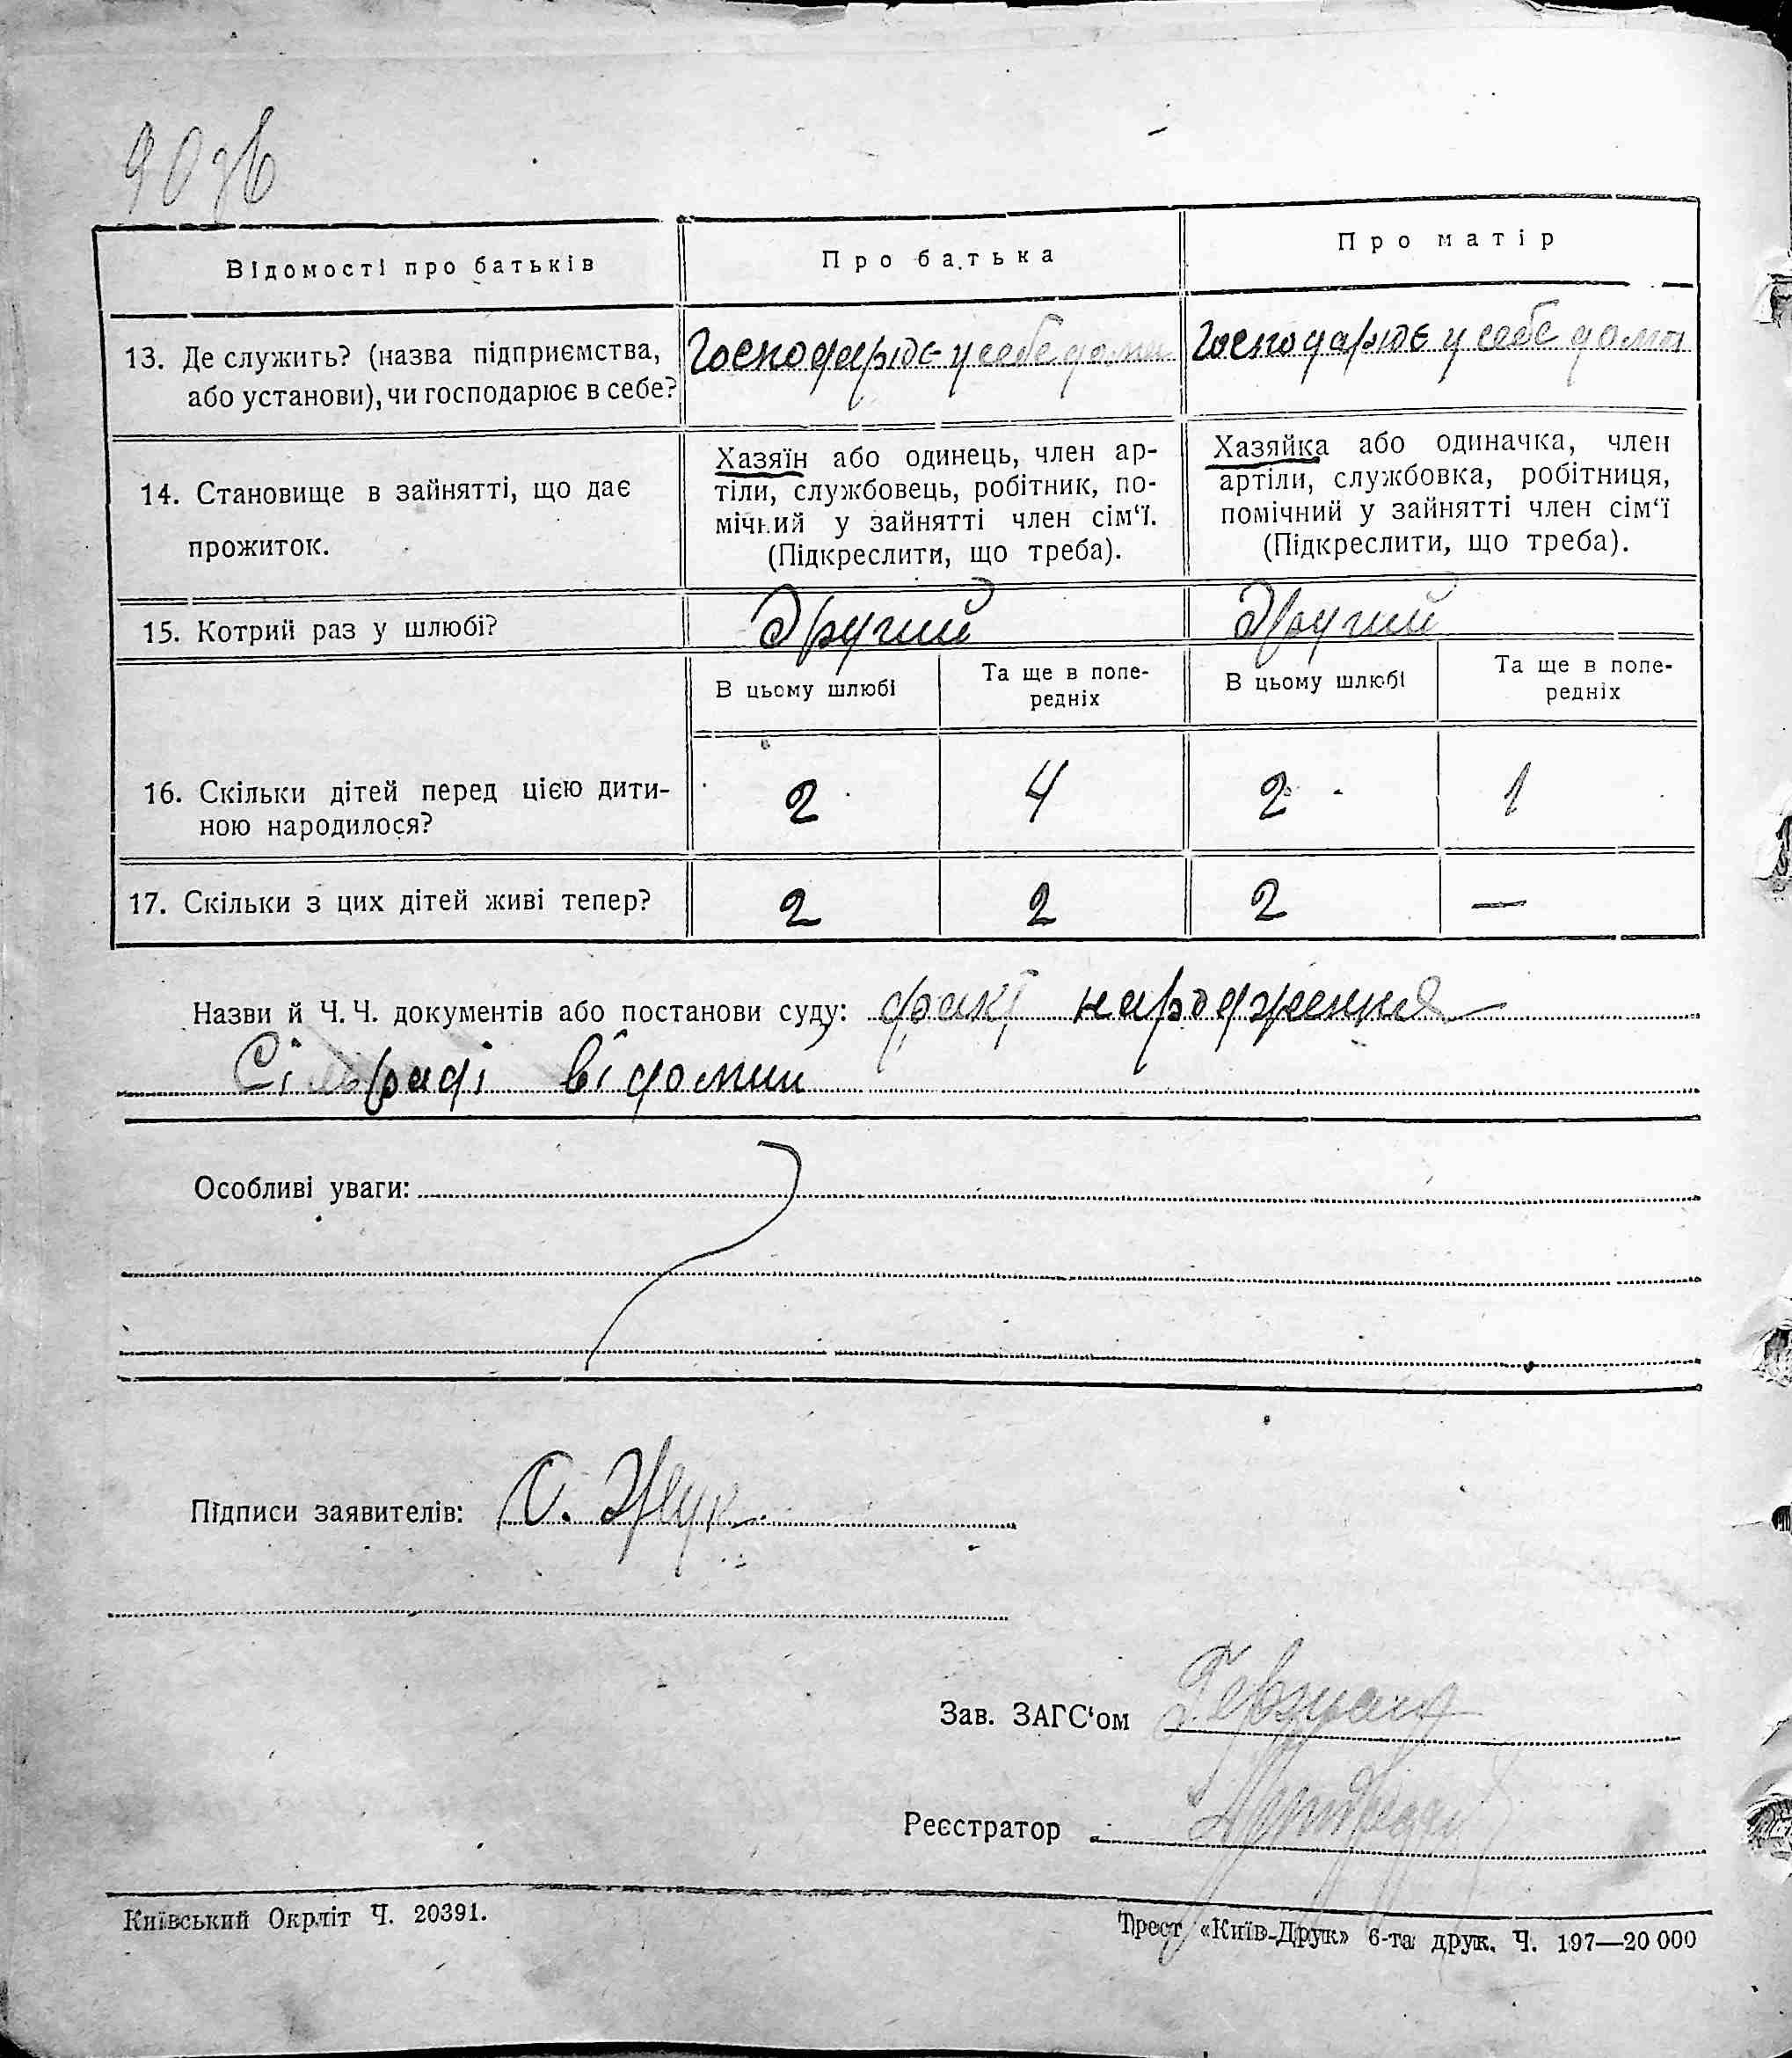 90зв
Відомості про батьків
Про батька
Про матір
13. Де служить? (назва підприємства,
або установи), чи господарює в себе?
Господарює у себе дома
Господарює у себе дома
14. Становище в зайнятті, що дає
прожиток.
Хазяїн або одинець, член ар-
тіли, службовець, робітник, по-
мічний у зайнятті член сім‘ї.
(Підкреслити, що треба).
Хазяйка або одиначка, член
артіли, службовка, робітниця,
помічний у зайнятті член сім‘ї
(Підкреслити, що треба).
15. Котрий раз у шлюбі?
Другий
Другий
В цьому шлюбі
Та ще в попе-
редніх
В цьому шлюбі
Та ще в попе-
редніх
16. Скільки дітей перед цією дити-
ною народилося?
2 4 2 1
17. Скільки з цих дітей живі тепер?
2 2 2 —
Назви й Ч. Ч. документів або постанови суду: факт народження
Сільраді відомий
Особливі уваги:
Підписи заявителів: О. Жук
Зав. ЗАГС‘ом
Реєстратор
Київський Окрліт Ч. 20391.
Трест «Київ-Друк» 6-та друк. Ч. 197—20 000